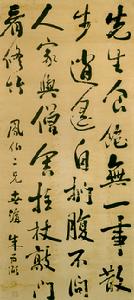 先生食飽無一事散
步逍遙自捫腹不問
人家與僧舍拄杖敲門
看修竹 鳳伯二兄